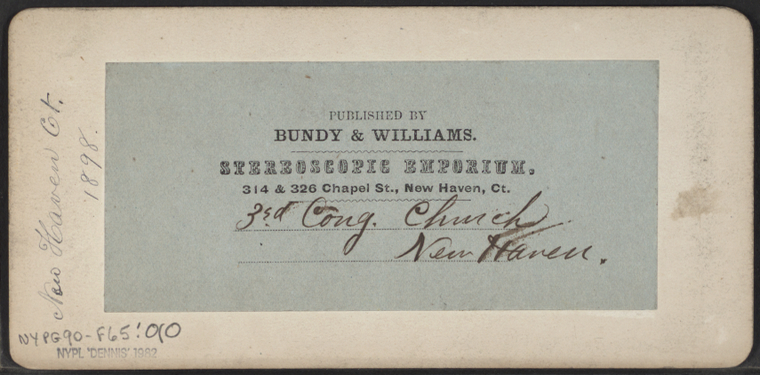 PUBLISHED BY
BUNDY & WILLIAMS.
STEREOSCOPIC EMPORIUM.
314 & 326 Chapel St., New Haven, Ct.
3rd Cong. Church
New Haven.
New Haven Ct.
1898.
NYPG90-F65:010
NYPL 'DENNIS' 1982